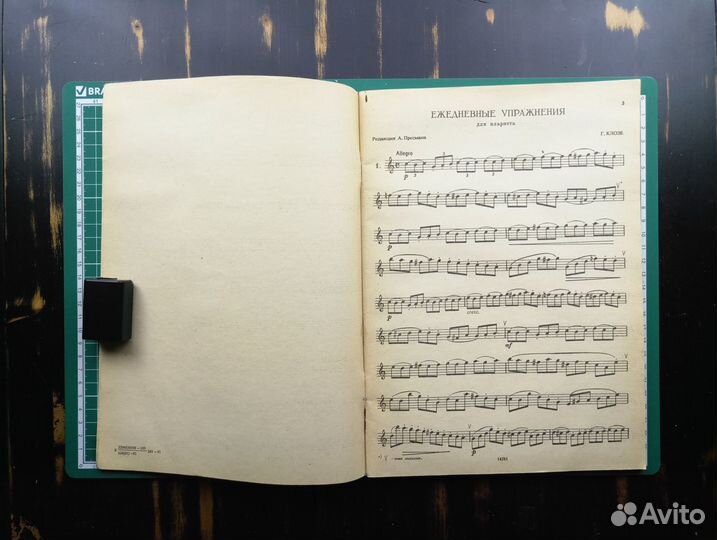 BRA
3
ЕЖЕДНЕВНЫЕ УПРАЖНЕНИЯ
для кларнета
Редакция А. Пресмана
Г. КЛОЗЕ
Allegro
1.
p
V
p
V
p
cresc.
V
mf
V
V
p
14211
Avito